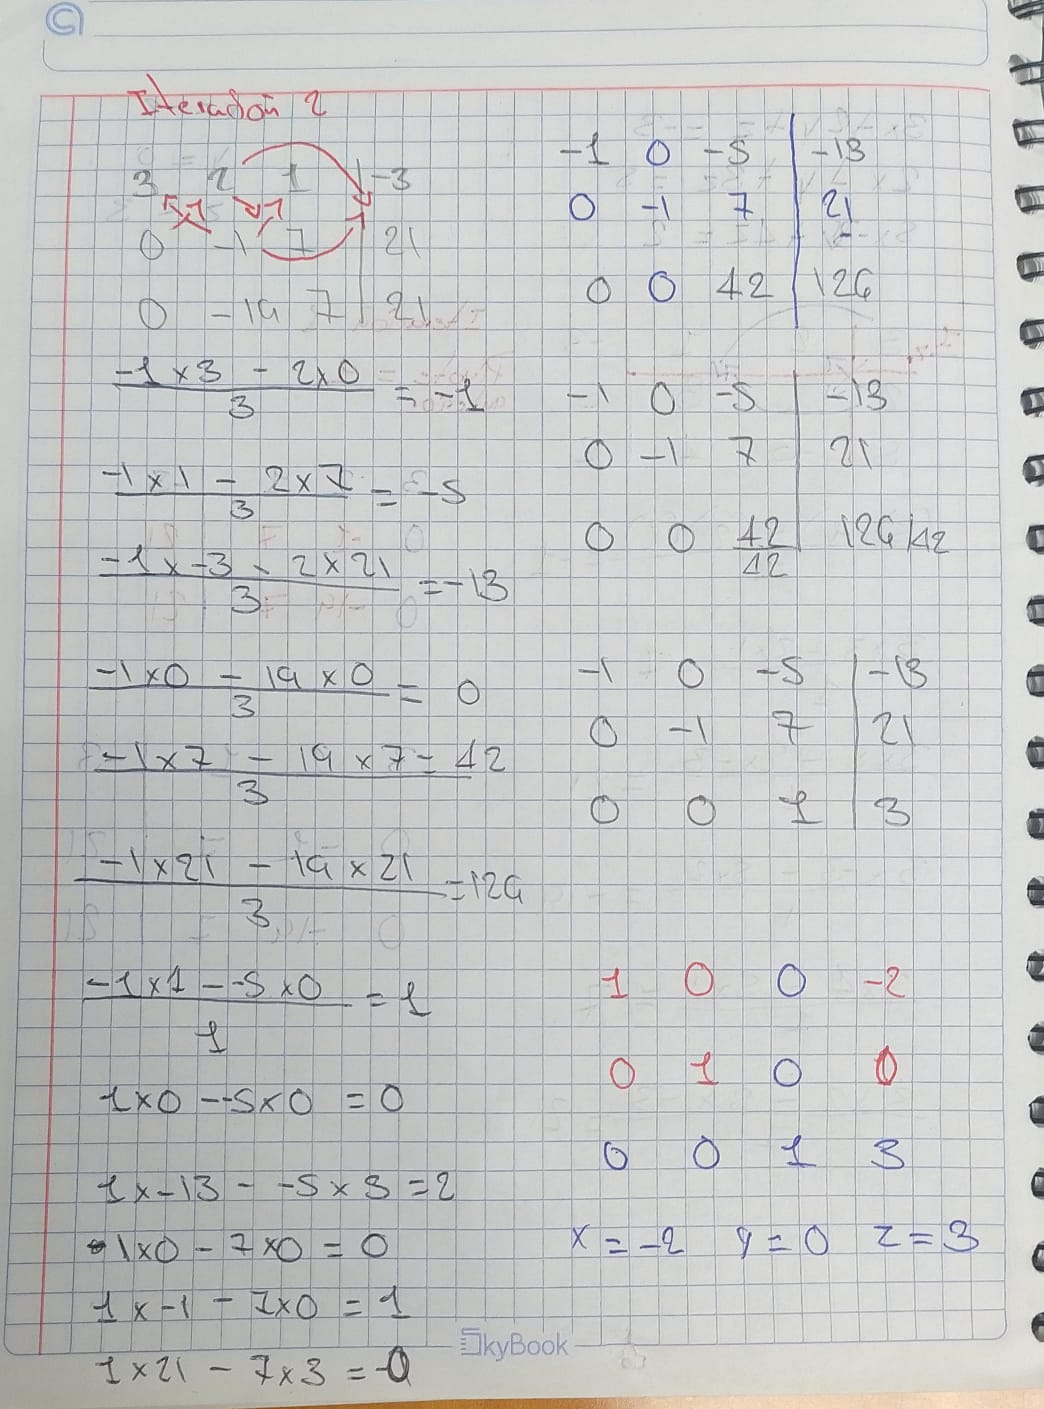 Iteración 2
3 2 1 | -3
0 -1 7 | 21
0 -19 7 | 21
-1 x 3 - 2x0 / 3 = -1
-1 x 1 - 2 x 7 / 3 = -5
-1 x -3 - 2 x 21 / 3 = -13
-1x0 - 19 x 0 / 3 = 0
-1 x 7 - 19 x 7 / 3 = 42
-1 x 21 - 19 x 21 / 3 = 126
-1 x 1 - -5 x 0 / 1 = 1
1x0 - -5x0 = 0
1 x -13 - -5 x 3 = 2
-1x0 - 7x0 = 0
1 x -1 - 7x0 = 1
1 x 21 - 7 x 3 = -0
-1 0 -5 | -13
0 -1 7 | 21
0 0 42 | 126
-1 0 -5 | -13
0 -1 7 | 21
0 0 42/42 | 126/42
-1 0 -5 | -13
0 -1 7 | 21
0 0 1 | 3
1 0 0 -2
0 1 0 0
0 0 1 3
x = -2 y = 0 z = 3
SkyBook